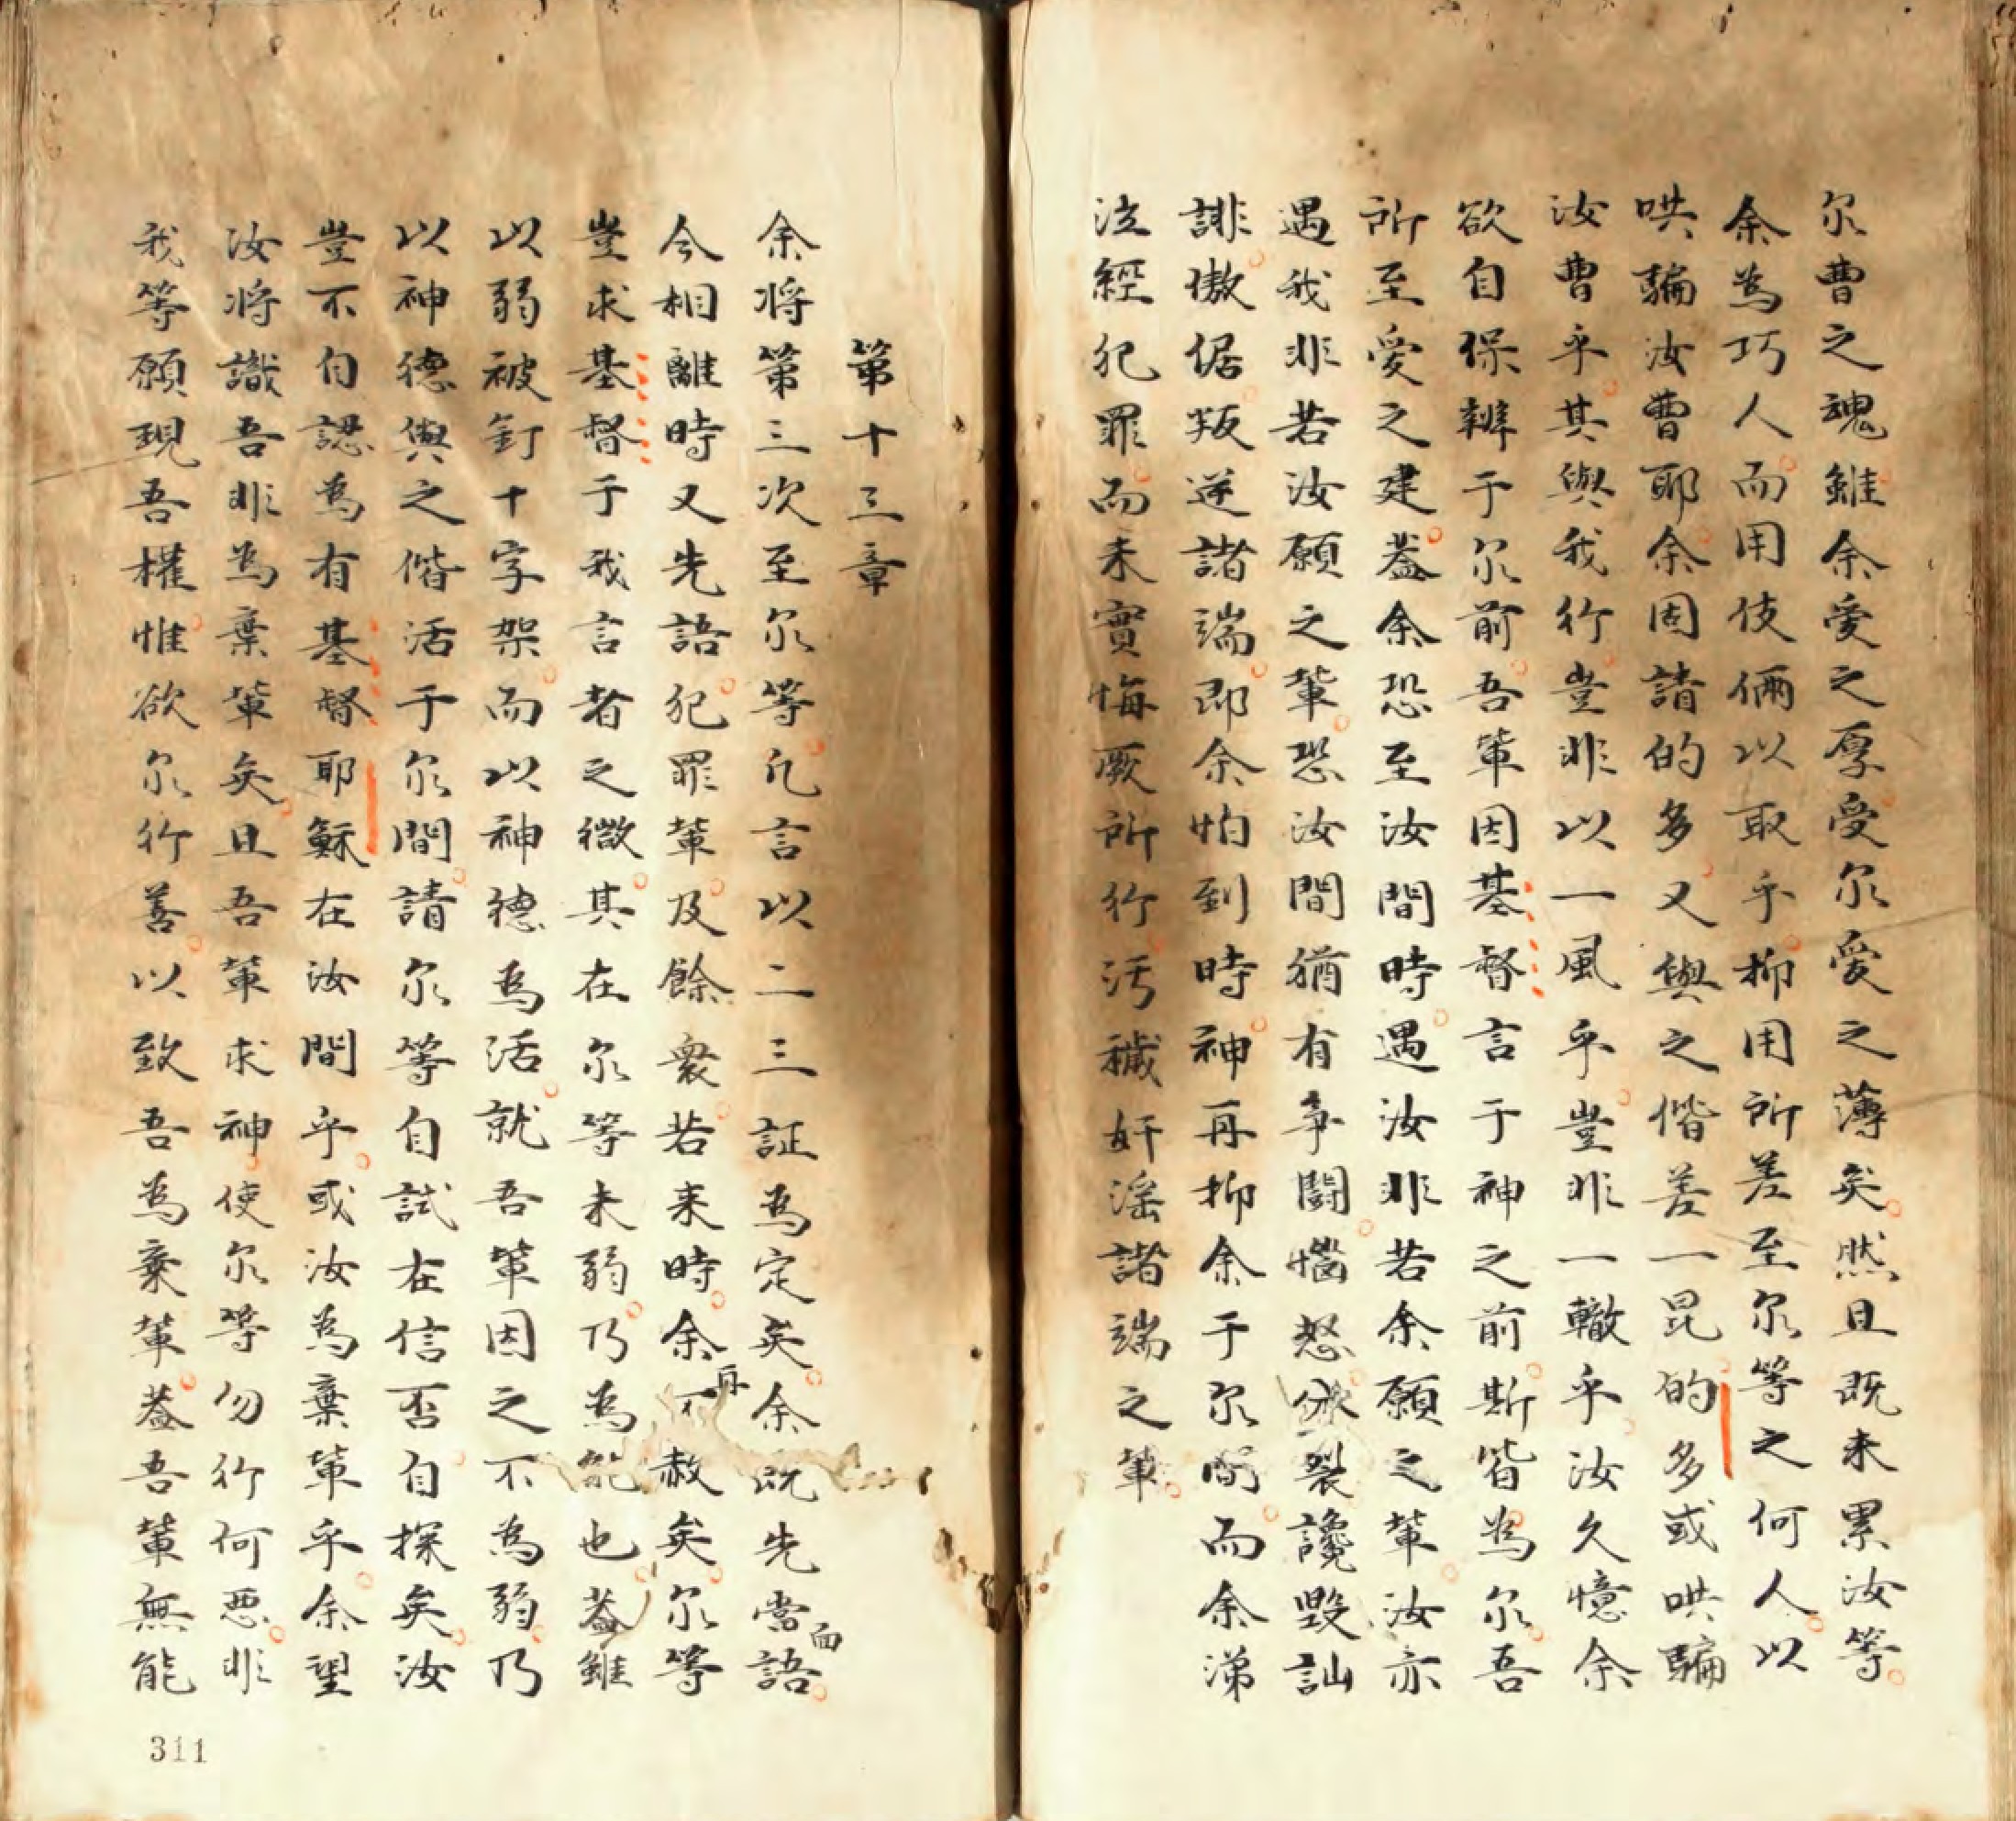 尔曹之魂雖余愛之厚受尔愛之薄矣然且既未累汝等
余為巧人而用伎倆以取乎抑用所差至尔等之何人以
哄騙汝曹耶余固請的多又與之偕差一昆的多或哄騙
汝曹乎其與我行豈非以一風乎豈非一轍乎汝久憶余
欲自保辨于尔前吾軰因基督言于神之前斯皆為尔吾
所至愛之建葢余恐至汝間時遇汝非若余願之軰汝亦
遇我非若汝願之軰恐汝間猶有争鬪惱怒分裂讒毁訕
誹傲倨叛逆諸端即余怕到時神再抑余于尔間而余涕
泣經犯罪而未實悔厥所行污穢奸滛諸端之軰
第十三章
余将第三次至尔等凢言以二三証為定矣余既先當面語
今相離時又先語犯罪軰及餘衆若来時余不再赦矣尔等
豈求基督于我言者之徵其在尔等未弱乃為能也葢雖
以弱被釘十字架而以神德為活就吾軰因之不為弱乃
以神德與之偕活于尔間請尔等自試在信否自探矣汝
豈不自認為有基督耶穌在汝間乎或汝為棄軰乎余望
汝将識吾非為棄軰矣且吾軰求神使尔等勿行何惡非
我等願現吾權惟欲尔行善以致吾為棄軰葢吾軰無能
311